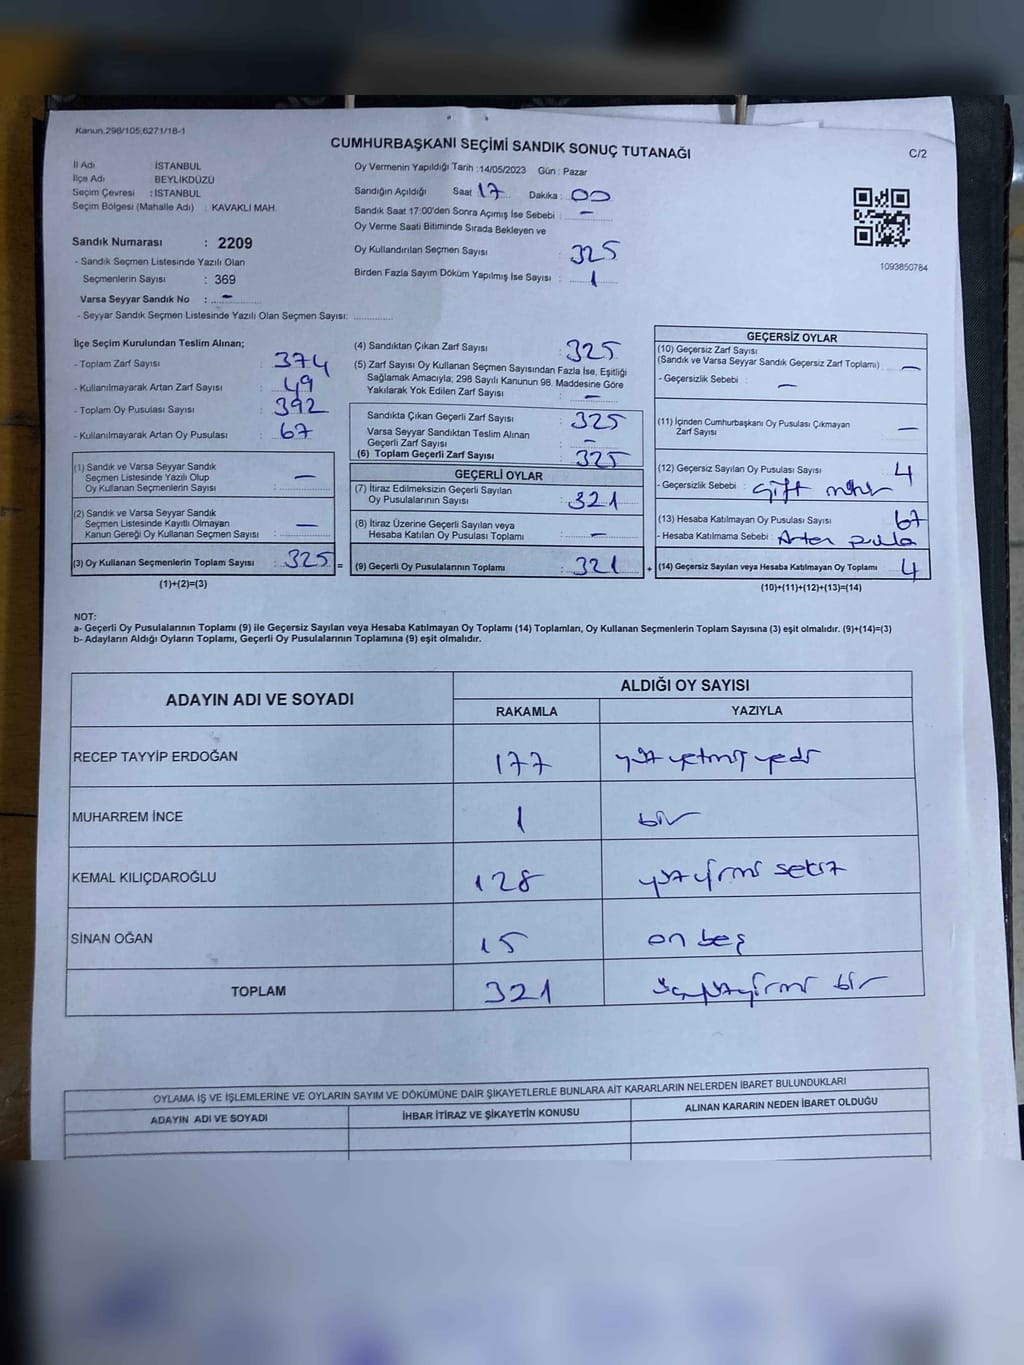 Kanun,298/105,6271/18-1
CUMHURBAŞKANI SEÇİMİ SANDIK SONUÇ TUTANAĞI
C/2
İl Adı İSTANBUL
İlçe Adı BEYLİKDÜZÜ
Seçim Çevresi : İSTANBUL
Seçim Bölgesi (Mahalle Adı) : KAVAKLI MAH.
Sandık Numarası : 2209
- Sandık Seçmen Listesinde Yazılı Olan
Seçmenlerin Sayısı : 369
Varsa Seyyar Sandık No : -
- Seyyar Sandık Seçmen Listesinde Yazılı Olan Seçmen Sayısı:
Oy Vermenin Yapıldığı Tarih :14/05/2023 Gün : Pazar
Sandığın Açıldığı Saat 17 Dakika : 00
Sandık Saat 17:00'den Sonra Açımış İse Sebebi : -
Oy Verme Saati Bitiminde Sırada Bekleyen ve
Oy Kullandırılan Seçmen Sayısı : 325
Birden Fazla Sayım Döküm Yapılmış İse Sayısı : 1
1093850784
İlçe Seçim Kurulundan Teslim Alınan;
- Toplam Zarf Sayısı : 374
- Kullanılmayarak Artan Zarf Sayısı : 49
- Toplam Oy Pusulası Sayısı : 392
- Kullanılmayarak Artan Oy Pusulası : 67
(1) Sandık ve Varsa Seyyar Sandık
Seçmen Listesinde Yazılı Olup
Oy Kullanan Seçmenlerin Sayısı : -
(2) Sandık ve Varsa Seyyar Sandık
Seçmen Listesinde Kayıtlı Olmayan
Kanun Gereği Oy Kullanan Seçmen Sayısı : -
(3) Oy Kullanan Seçmenlerin Toplam Sayısı : 325 =
(1)+(2)=(3)
(4) Sandıktan Çıkan Zarf Sayısı : 325
(5) Zarf Sayısı Oy Kullanan Seçmen Sayısından Fazla İse, Eşitliği
Sağlamak Amacıyla; 298 Sayılı Kanunun 98. Maddesine Göre
Yakılarak Yok Edilen Zarf Sayısı : -
Sandıkta Çıkan Geçerli Zarf Sayısı : 325
Varsa Seyyar Sandıktan Teslim Alınan
Geçerli Zarf Sayısı : -
(6) Toplam Geçerli Zarf Sayısı : 325
GEÇERLİ OYLAR
(7) İtiraz Edilmeksizin Geçerli Sayılan
Oy Pusulalarının Sayısı : 321
(8) İtiraz Üzerine Geçerli Sayılan veya
Hesaba Katılan Oy Pusulası Toplamı : -
(9) Geçerli Oy Pusulalarının Toplamı : 321 +
GEÇERSİZ OYLAR
(10) Geçersiz Zarf Sayısı
(Sandık ve Varsa Seyyar Sandık Geçersiz Zarf Toplamı) : -
- Geçersizlik Sebebi : -
(11) İçinden Cumhurbaşkanı Oy Pusulası Çıkmayan
Zarf Sayısı : -
(12) Geçersiz Sayılan Oy Pusulası Sayısı : 4
- Geçersizlik Sebebi : Çift mühür
(13) Hesaba Katılmayan Oy Pusulası Sayısı : 67
- Hesaba Katılmama Sebebi : Artan pusla
(14) Geçersiz Sayılan veya Hesaba Katılmayan Oy Toplamı : 4
(10)+(11)+(12)+(13)=(14)
NOT:
a- Geçerli Oy Pusulalarının Toplamı (9) ile Geçersiz Sayılan veya Hesaba Katılmayan Oy Toplamı (14) Toplamları, Oy Kullanan Seçmenlerin Toplam Sayısına (3) eşit olmalıdır. (9)+(14)=(3)
b- Adayların Aldığı Oyların Toplamı, Geçerli Oy Pusulalarının Toplamına (9) eşit olmalıdır.
ADAYIN ADI VE SOYADI
ALDIĞI OY SAYISI
RAKAMLA YAZIYLA
RECEP TAYYİP ERDOĞAN 177 yüz yetmiş yedi
MUHARREM İNCE 1 bir
KEMAL KILIÇDAROĞLU 128 yüz yirmi sekiz
SİNAN OĞAN 15 on beş
TOPLAM 321 üçyüzyirmi bir
OYLAMA İŞ VE İŞLEMLERİNE VE OYLARIN SAYIM VE DÖKÜMÜNE DAİR ŞİKAYETLERLE BUNLARA AİT KARARLARIN NELERDEN İBARET BULUNDUKLARI
ADAYIN ADI VE SOYADI İHBAR İTİRAZ VE ŞİKAYETİN KONUSU ALINAN KARARIN NEDEN İBARET OLDUĞU